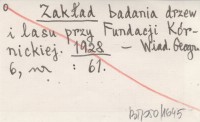 Zakład badania drzew
i lasu przy Fundacji Kór-
nickiej. 1938 — Wiad. Geogr.
6, nr : 61.